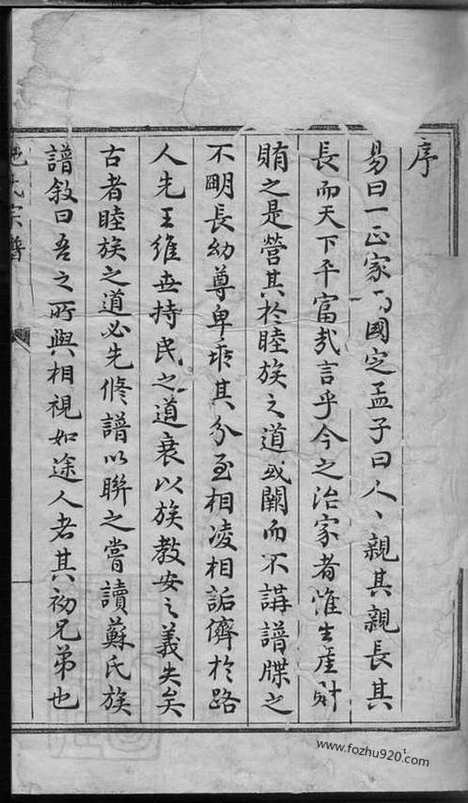 序
易曰一正家而國定孟子曰人、親其親長其
長而天下平富哉言乎今之治家者惟生產財
賄之是營其於睦族之道或闕而不講譜牒之
不明長幼尊卑乖其分至相凌相詬儕於路
人先王維世持民之道衰以族教安之義失矣
古者睦族之道必先修譜以聯之嘗讀蘇氏族
譜敘曰吾之所與相視如途人者其初兄弟也
氏宗譜
www.fozhu920.com